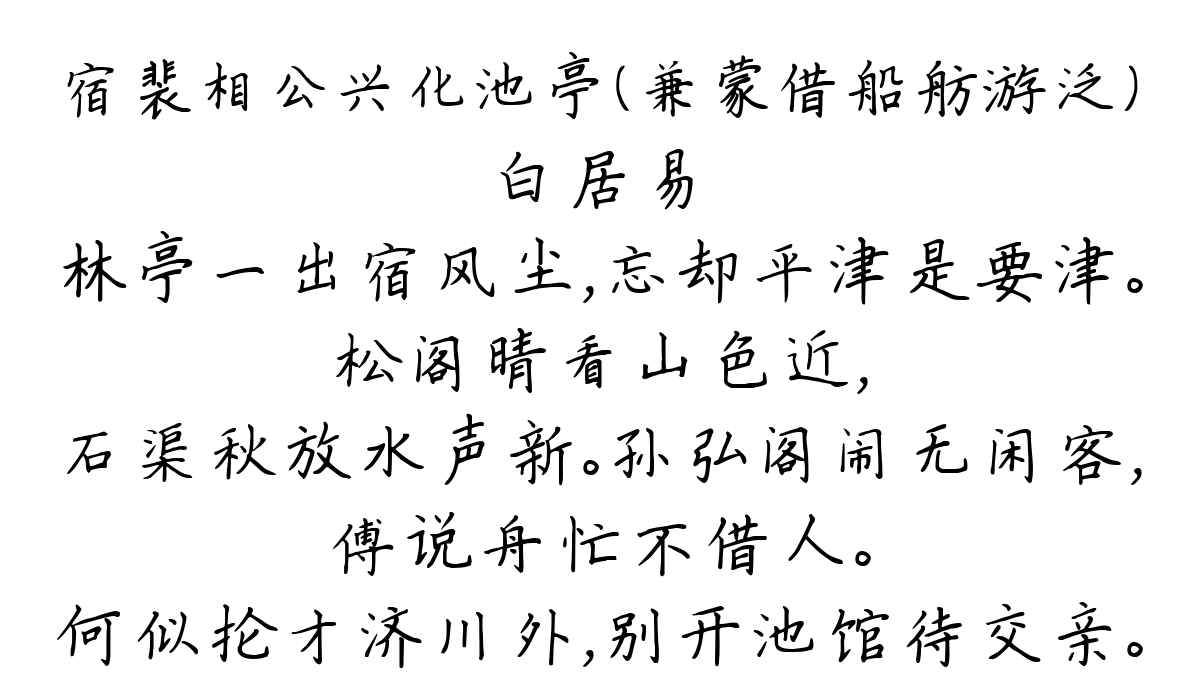 宿裴相公兴化池亭(兼蒙借船舫游泛)
白居易
林亭一出宿风尘,忘却平津是要津。
松阁晴看山色近,
石渠秋放水声新。孙弘阁闹无闲客,
傅说舟忙不借人。
何似抡才济川外,别开池馆待交亲。